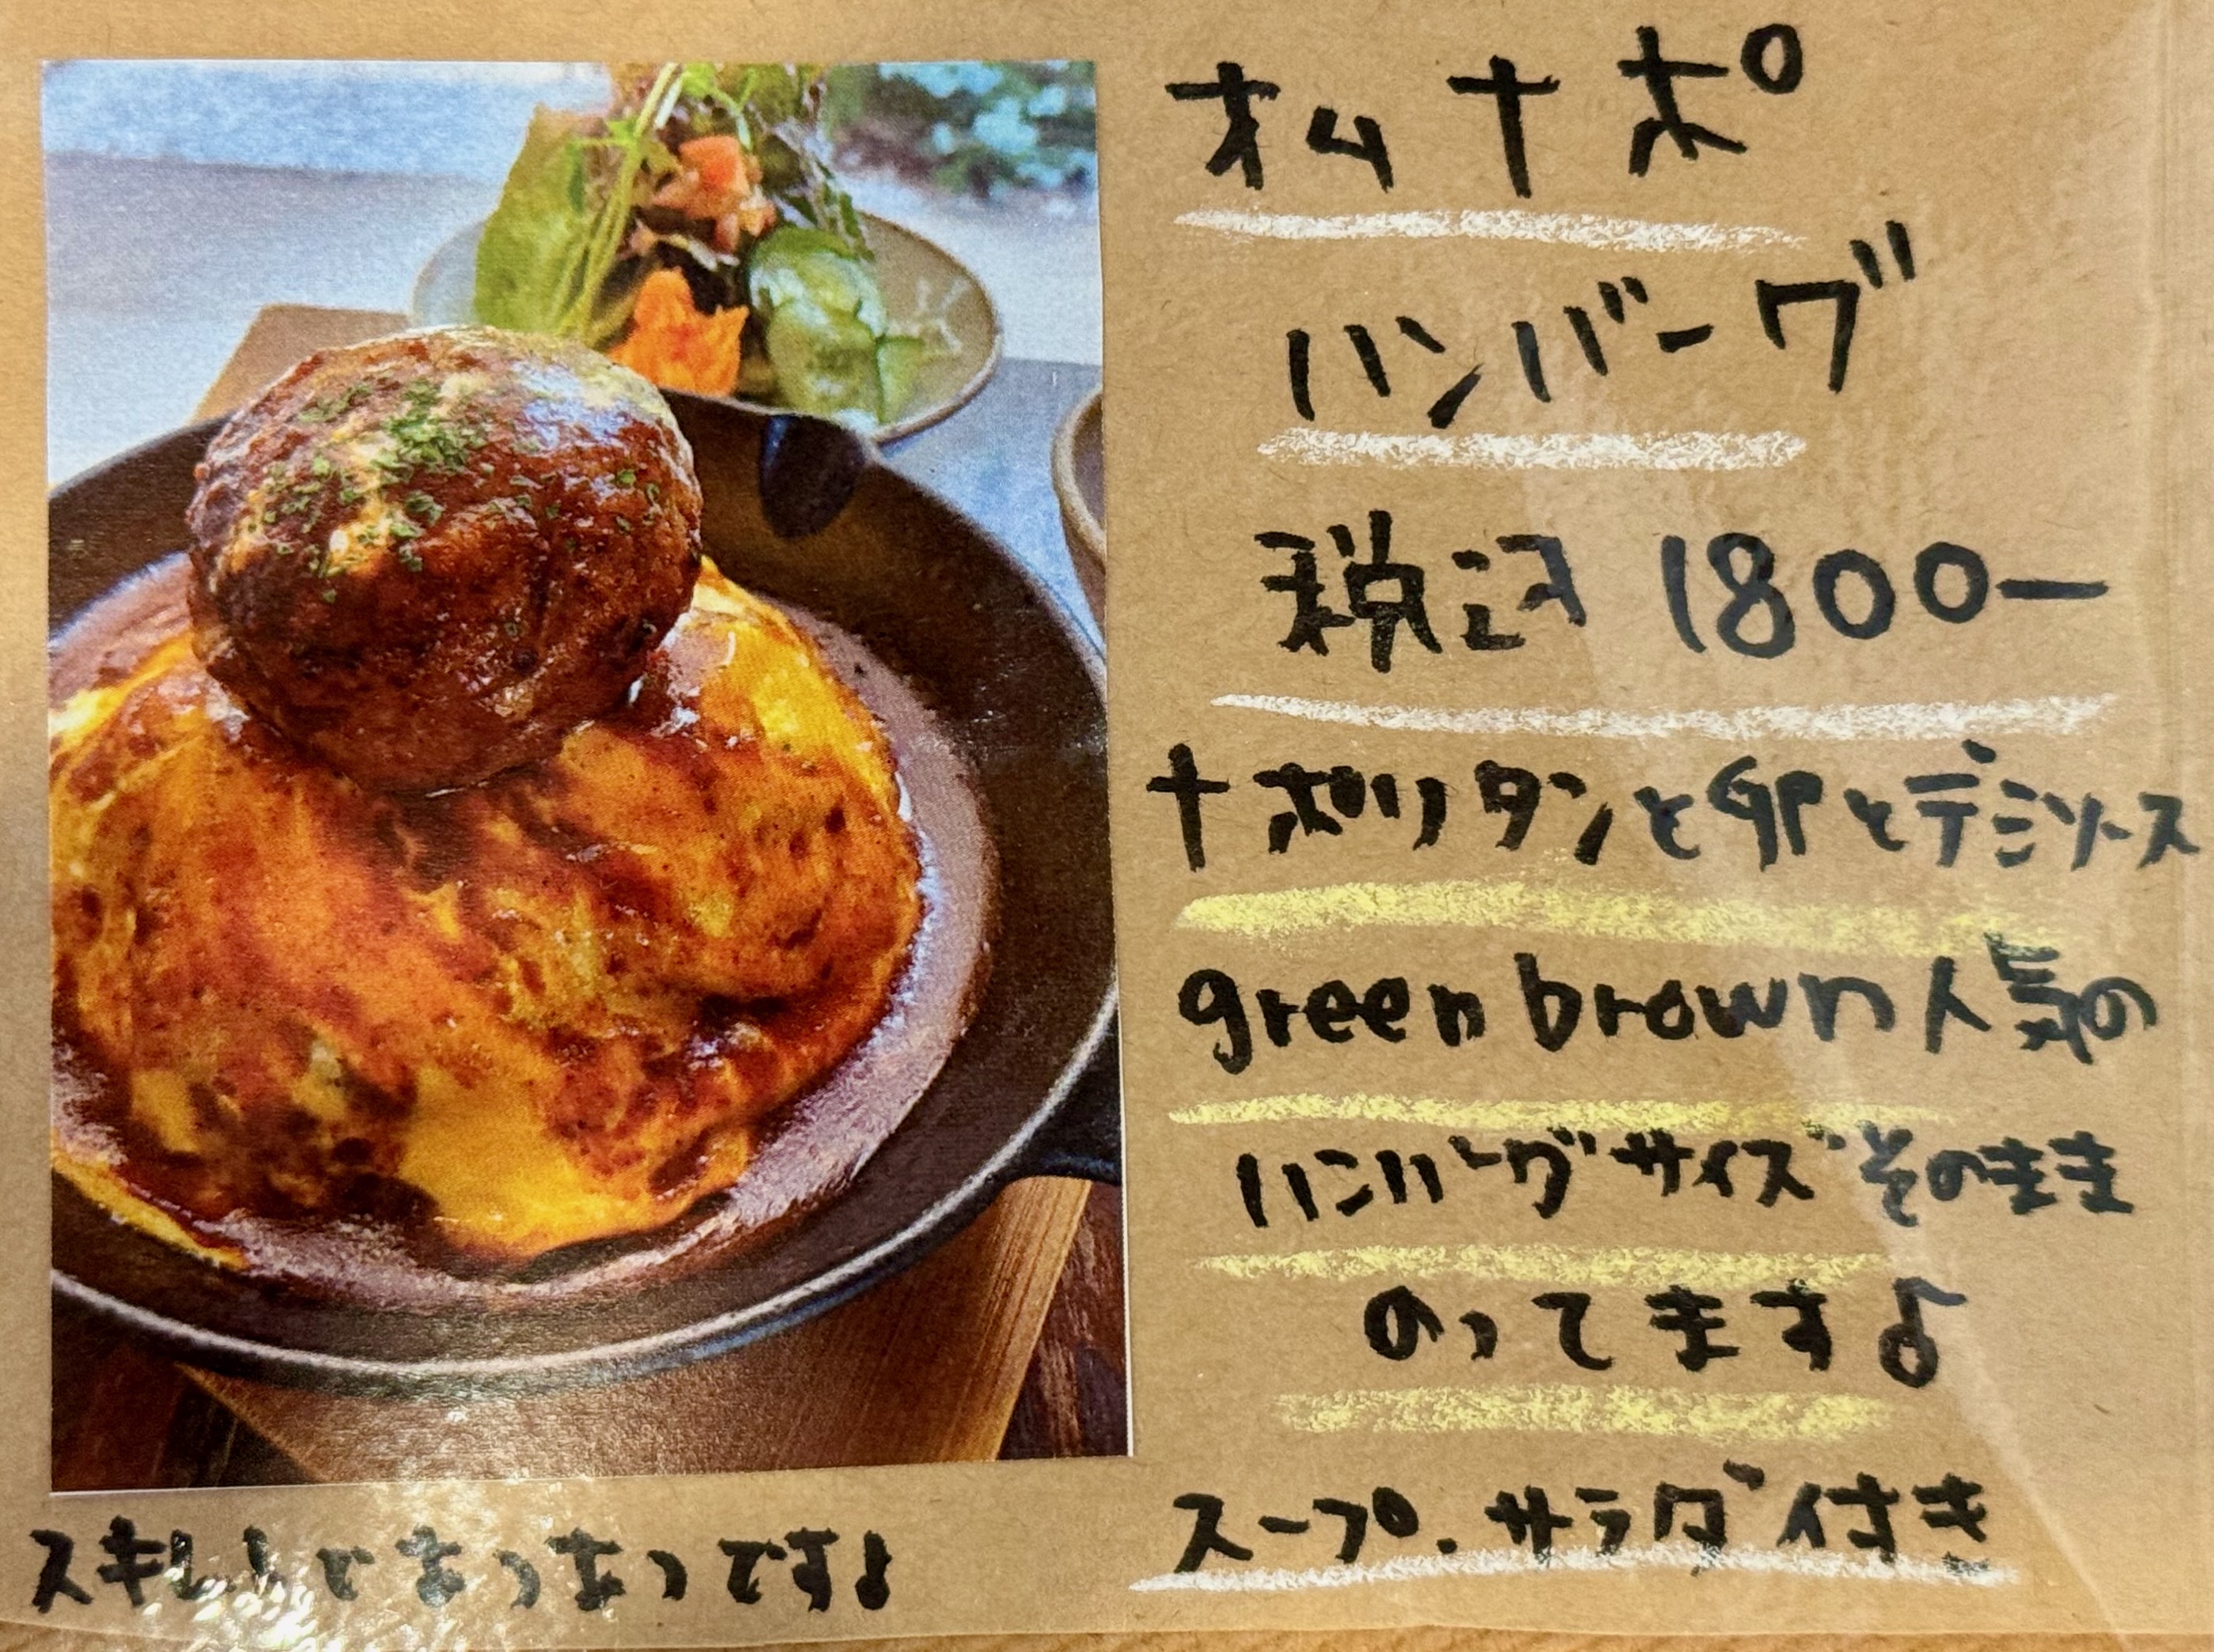 松ナポ
ハンバーグ
税込 1800ー
ナポリタンと卵とデミソース
green brown人気の
ハンバーグサイズそのまま
のってます♪
スープ.サラダ付き
スキレットであつあつです♪